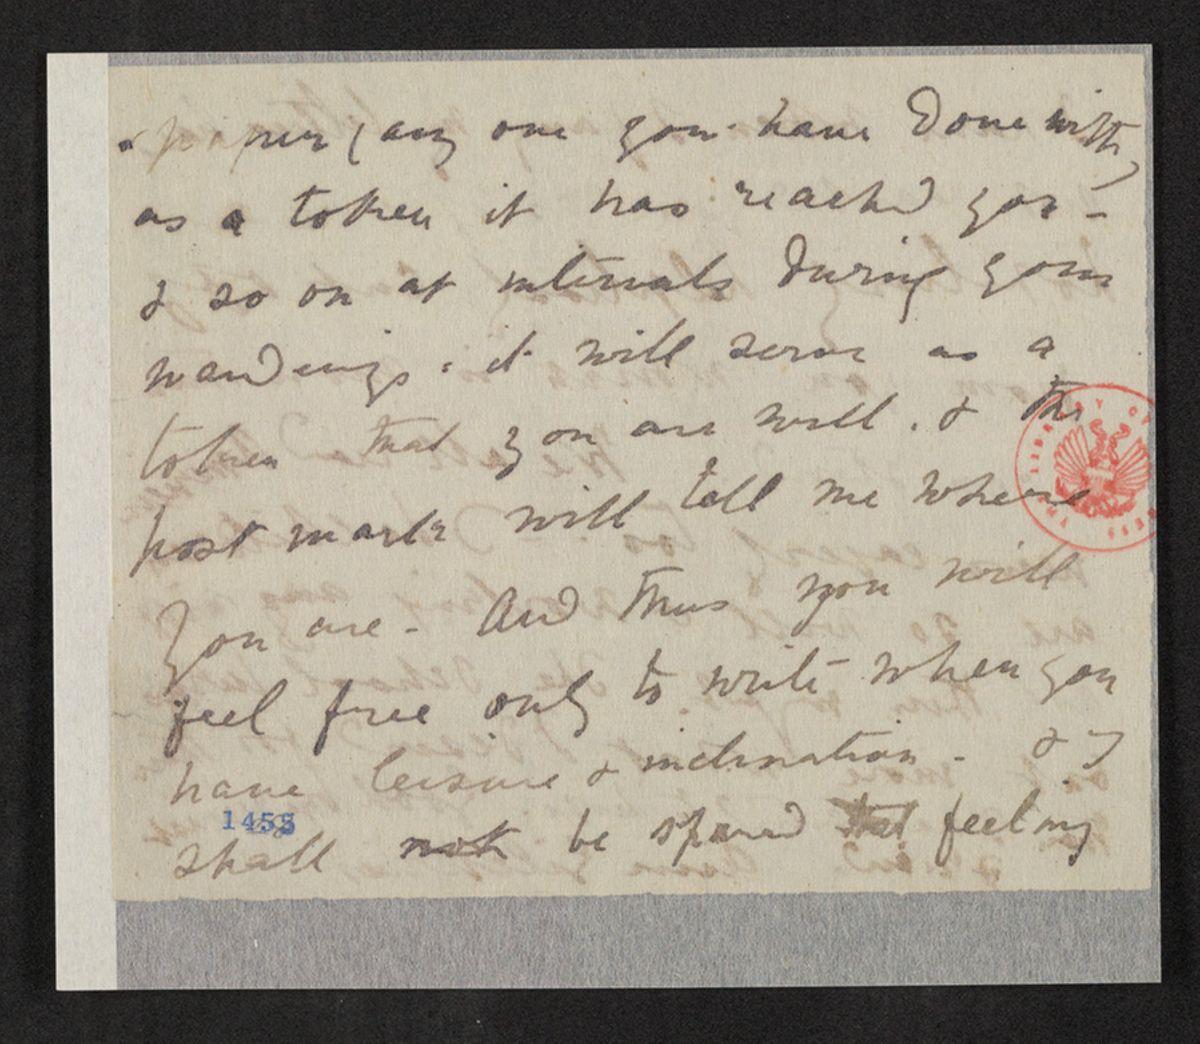 a paper (any one you have done with)
as a token it has reached you -
& so on at intervals during your
wanderings. it will serve as a
token that you are well. & the
post mark will tell me where
you are - And thus you will
feel free only to write when you
have leisure & inclination - & I
shall not be spared that feeling
1455